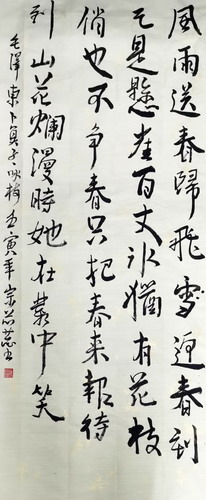 風雨送春歸飛雪迎春到
已是懸崖百丈冰猶有花枝
俏也不争春只把春來報待
到山花爛漫時她在叢中笑
毛澤東卜算子咏梅壬寅年